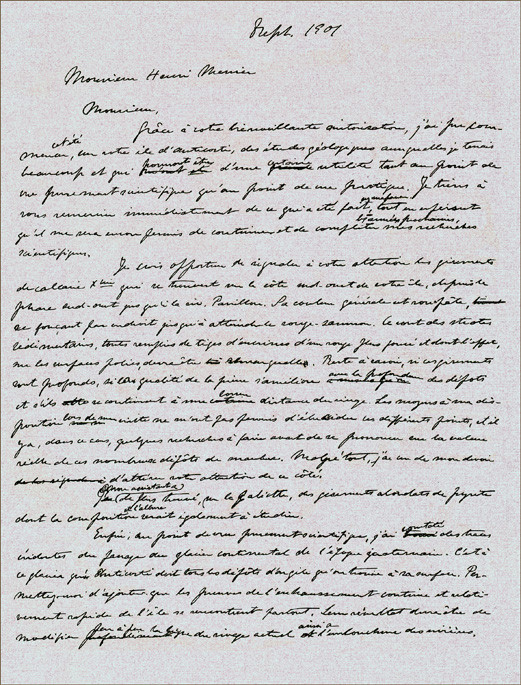 Sept. 1901
Monsieur Henri Menier
Monsieur,
Grâce à votre bienveillante autorisation, j'ai pu pour-
l'été
suivre, sur votre île d'Anticosti, des études géologiques auxquelles je tenais
beaucoup et qui pourront être d'une certaine utilité tant au point de
vue purement scientifique qu'au point de vue pratique. Je tiens à
vous remercier immédiatement de ce qui a été fait, tout en espérant
les années prochaines,
qu'il me sera encore permis de continuer et de compléter mes recherches
scientifiques.
Je crois opportun de signaler à votre attention les gisements
de calcaire qui se trouvent sur la côte sud-ouest de votre île, depuis le
phare sud-ouest jusqu'à la riv. Pavillon. Sa couleur générale est rosepâle,
se fonçant par endroit jusqu'à atteindre le rouge-saumon. Ce sont des strates
sédimentaires, toutes remplies de tiges d'encrines d'un rouge plus foncé et dont l'effet,
sur les surfaces polies, doit être remarquable. Reste à savoir, si ces gisements
sont profonds, si la qualité de la pierre s'améliore des dépôts
et s'ils se continuent à une distance du rivage. Les moyens à ma dis-
position ne m'ont pas permis d'élucider ces différents points, et il
y a, dans ce cas, quelques recherches à faire avant de se prononcer sur la valeur
réelle de ces nombreux dépôts de marbre. Malgré tout, j'ai cru de mon devoir
d'attirer votre attention de ce côté.
De plus trouvé, sur la Galiotte, des gisements abondants de pyrite
dont la composition serait également à étudier.
Enfin, au point de vue purement scientifique, j'ai constaté des traces
évidentes du passage du glacier continental de l'époque quaternaire. C'est à
ce glacier qu'Anticosti doit tous les dépôts d'argile qu'on trouve à sa surface. Per-
mettez-moi d'ajouter que les preuves de l'exhaussement continu et relati-
vement rapide de l'île se rencontrent partout. Leur résultat doit être de
modifier peu à peu la ligne du rivage actuel ainsi que l'embouchure des rivières.